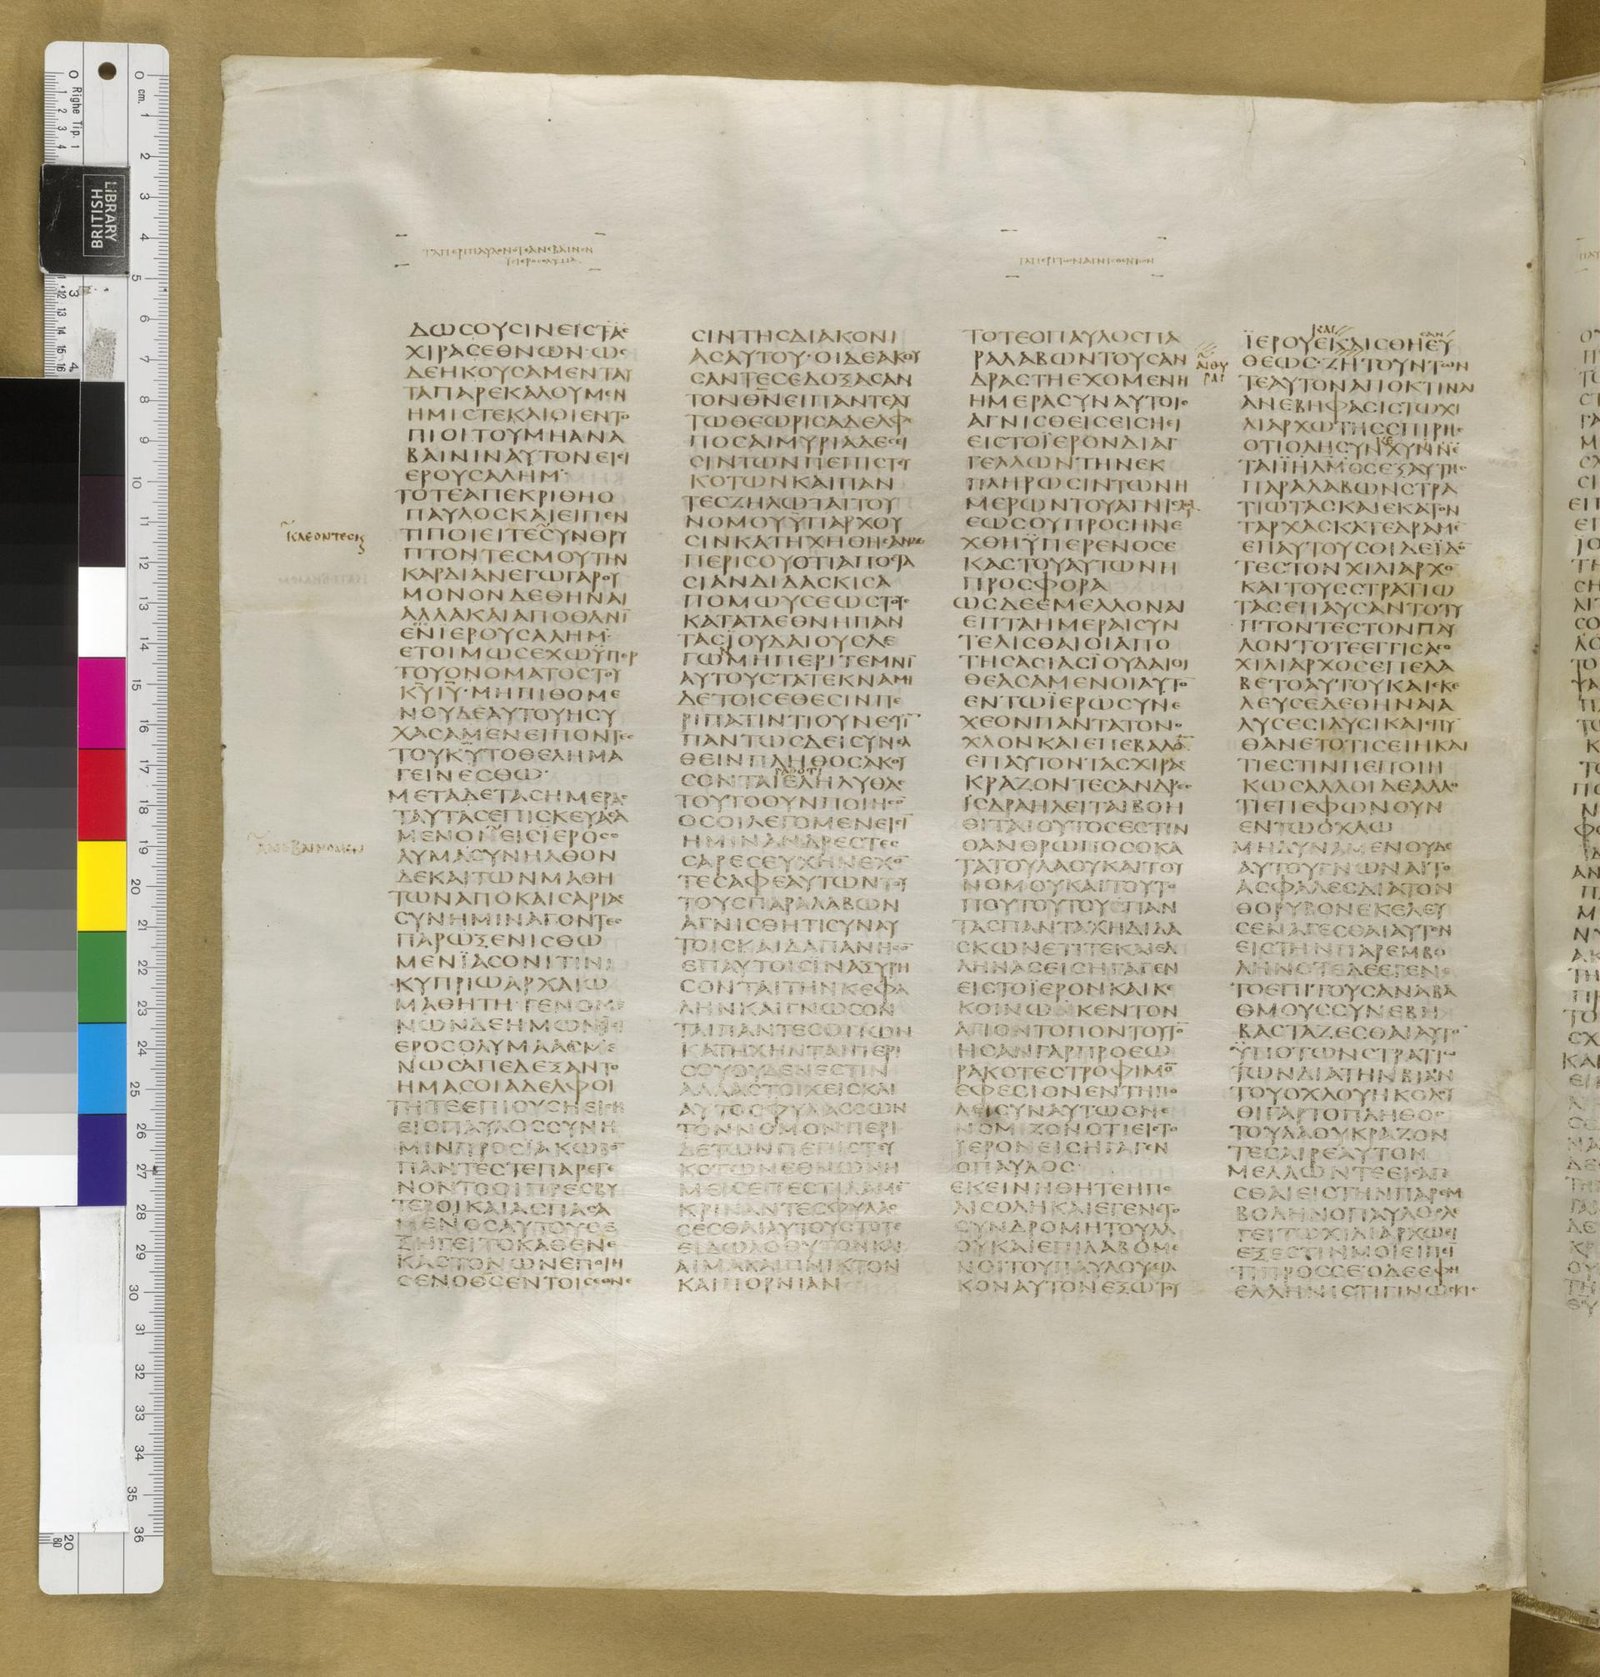 ΔΩCΟΥCΙΝΕΙCΤΑC
ΧΙΡΑCΕΘΝΩΝ·ΩC
ΔΕΗΚΟΥCΑΜΕΝΤΑΥ
ΤΑΠΑΡΕΚΑΛΟΥΜΕΝ
ΗΜΙCΤΕΚΑΙΟΙΕΝΤΟ
ΠΙΟΙΤΟΥΜΗΑΝΑ
ΒΑΙΝΙΝΑΥΤΟΝΕΙC
ΙΕΡΟΥCΑΛΗΜ·
ΤΟΤΕΑΠΕΚΡΙΘΗΟ
ΠΑΥΛΟCΚΑΙΕΙΠΕΝ
ΤΙΠΟΙΕΙΤΕCΥΝΘΡΥ
ΠΤΟΝΤΕCΜΟΥΤΗΝ
ΚΑΡΔΙΑΝΕΓΩΓΑΡΟΥ
ΜΟΝΟΝΔΕΘΗΝΑΙ
ΑΛΛΑΚΑΙΑΠΟΘΑΝΙ̅
ΕΝΙΕΡΟΥCΑΛΗΜ·
ΕΤΟΙΜΩCΕΧΩΫΠΕΡ
ΤΟΥΟΝΟΜΑΤΟCΤΟΥ
Κ̅Υ̅Ι̅Υ̅·ΜΗΠΙΘΟΜΕ
ΝΟΥΔΕΑΥΤΟΥΗCΥ
ΧΑCΑΜΕΝΕΙΠΟΝΤΕC
ΤΟΥΚ̅Υ̅ΤΟΘΕΛΗΜΑ
ΓΕΙΝΕCΘΩ·
ΜΕΤΑΔΕΤΑCΗΜΕΡΑC
ΤΑΥΤΑCΕΠΙCΚΕΥΑCΑ
ΜΕΝΟΙΕΙCΪΕΡΟCΟ
ΛΥΜΑCΥΝΗΛΘΟΝ
ΔΕΚΑΙΤΩΝΜΑΘΗ
ΤΩΝΑΠΟΚΑΙCΑΡΙΑC
CΥΝΗΜΙΝΑΓΟΝΤΕC
ΠΑΡΩΞΕΝΙCΘΩ
ΜΕΝΪΑCΟΝΙΤΙΝΙ
ΚΥΠΡΙΩΑΡΧΑΙΩ
ΜΑΘΗΤΗ·ΓΕΝΟΜΕ
ΝΩΝΔΕΗΜΩΝΕΙC
ΙΕΡΟCΟΛΥΜΑΑCΜΕ
ΝΩCΑΠΕΔΕΞΑΝΤΟ
ΗΜΑCΟΙΑΔΕΛΦΟΙ
ΤΗΤΕΕΠΙΟΥCΗΕΙCΗ
ΕΙΟΠΑΥΛΟCCΥΝΗ
ΜΙΝΠΡΟCΪΑΚΩΒΟ̅
ΠΑΝΤΕCΤΕΠΑΡΕΓΕ
ΝΟΝΤΟΟΙΠΡΕCΒΥ
ΤΕΡΟΙΚΑΙΑCΠΑCΑ
ΜΕΝΟCΑΥΤΟΥCΕ
ΞΗΓΕΙΤΟΚΑΘΕΝΕ
ΚΑCΤΟΝΩΝΕΠΟΙΗ
CΕΝΟΘ̅C̅ΕΝΤΟΙCΕΘΝΕ
CΙΝΤΗCΔΙΑΚΟΝΙ
ΑCΑΥΤΟΥ·ΟΙΔΕΑΚΟΥ
CΑΝΤΕCΕΔΟΞΑCΑΝ
ΤΟΝΘ̅Ν̅ΕΙΠΑΝΤΕΑΥ
ΤΩΘΕΩΡΙCΑΔΕΛΦΕ
ΠΟCΑΙΜΥΡΙΑΔΕCΕΙ
CΙΝΤΩΝΠΕΠΙCΤΕΥ
ΚΟΤΩΝΚΑΙΠΑΝ
ΤΕCΖΗΛΩΤΑΙΤΟΥ
ΝΟΜΟΥΫΠΑΡΧΟΥ
CΙΝΚΑΤΗΧΗΘΗCΑΝΔΕ
ΠΕΡΙCΟΥΟΤΙΑΠΟCΤΑ
CΙΑΝΔΙΔΑCΚΙCΑ
ΠΟΜΩΥCΕΩCΤΟΥC
ΚΑΤΑΤΑΕΘΝΗΠΑΝ
ΤΑCΪΟΥΔΑΙΟΥCΛΕ
ΓΩΜΗΠΕΡΙΤΕΜΝΙ̅
ΑΥΤΟΥCΤΑΤΕΚΝΑΜΗ
ΔΕΤΟΙCΕΘΕCΙΝΠΕ
ΡΙΠΑΤΙΝΤΙΟΥΝΕCΤΙ̅
ΠΑΝΤΩCΔΕΙCΥΝΕΛ
ΘΕΙΝΠΛΗΘΟCΑΚΟΥ
CΟΝΤΑΙΕΛΗΛΥΘΑC
ΤΟΥΤΟΟΥΝΠΟΙΗCΟ̅
ΟCΟΙΛΕΓΟΜΕΝΕΙCΙ̅
ΗΜΙΝΑΝΔΡΕCΤΕC
CΑΡΕCΕΥΧΗΝΕΧΟ̅
ΤΕCΑΦΕΑΥΤΩΝΤΟΥ
ΤΟΥCΠΑΡΑΛΑΒΩΝ
ΑΓΝΙCΘΗΤΙCΥΝΑΥ
ΤΟΙCΚΑΙΔΑΠΑΝΗCΟ̅
ΕΠΑΥΤΟΙCΙΝΑΞΥΡΗ
CΟΝΤΑΙΤΗΝΚΕΦΑ
ΛΗΝΚΑΙΓΝΩCΟΝ
ΤΑΙΠΑΝΤΕCΟΤΙΩΝ
ΚΑΤΗΧΗΝΤΑΙΠΕΡΙ
CΟΥΟΥΔΕΝΕCΤΙΝ
ΑΛΛΑCΤΟΙΧΕΙCΚΑΙ
ΑΥΤΟCΦΥΛΑCCΩΝ
ΤΟΝΝΟΜΟΝΠΕΡΙ
ΔΕΤΩΝΠΕΠΙCΤΕΥ
ΚΟΤΩΝΕΘΝΩΝΗ
ΜΕΙCΕΠΕCΤΙΛΑΜΕ̅
ΚΡΙΝΑΝΤΕCΦΥΛΑC
CΕCΘΑΙΑΥΤΟΥCΤΟΤΕ
ΕΙΔΩΛΟΘΥΤΟΝΚΑΙ
ΑΙΜΑΚΑΙΠΝΙΚΤΟΝ
ΚΑΙΠΟΡΝΙΑΝ
ΤΟΤΕΟΠΑΥΛΟCΠΑ
ΡΑΛΑΒΩΝΤΟΥCΑΝ
ΔΡΑCΤΗΕΧΟΜΕΝΗ
ΗΜΕΡΑCΥΝΑΥΤΟΙC
ΑΓΝΙCΘΕΙCΕΙCΗΕΙ
ΕΙCΤΟΪΕΡΟΝΔΙΑΓ
ΓΕΛΛΩΝΤΗΝΕΚ
ΠΛΗΡΩCΙΝΤΩΝΗ
ΜΕΡΩΝΤΟΥΑΓΝΙCΜΟΥ
ΕΩCΟΥΠΡΟCΗΝΕ
ΧΘΗΫΠΕΡΕΝΟCΕ
ΚΑCΤΟΥΑΥΤΩΝΗ
ΠΡΟCΦΟΡΑ
ΩCΔΕΕΜΕΛΛΟΝΑΙ
ΕΠΤΑΗΜΕΡΑΙCΥΝ
ΤΕΛΙCΘΑΙΟΙΑΠΟ
ΤΗCΑCΙΑCΪΟΥΔΑΙΟΙ
ΘΕΑCΑΜΕΝΟΙΑΥΤΟ̅
ΕΝΤΩΪΕΡΩCΥΝΕ
ΧΕΟΝΠΑΝΤΑΤΟΝΟ
ΧΛΟΝΚΑΙΕΠΕΒΑΛΟ̅
ΕΠΑΥΤΟΝΤΑCΧΙΡΑC
ΚΡΑΖΟΝΤΕCΑΝΔΡΕC
ΙCΔΡΑΗΛΕΙΤΑΙΒΟΗ
ΘΙΤΑΙΟΥΤΟCΕCΤΙΝ
ΟΑΝΘΡΩΠΟCΟΚΑ
ΤΑΤΟΥΛΑΟΥΚΑΙΤΟΥ
ΝΟΜΟΥΚΑΙΤΟΥΤΟ
ΠΟΥΤΟΥΤΟΥCΠΑΝ
ΤΑCΠΑΝΤΑΧΗΔΙΔΑ
CΚΩΝΕΤΙΤΕΚΑΙΕΛ
ΛΗΝΑCΕΙCΗΓΑΓΕΝ
ΕΙCΤΟΪΕΡΟΝΚΑΙΚΕ
ΚΟΙΝΩΝΚΕΝΤΟΝ
ΑΓΙΟΝΤΟΠΟΝΤΟΥΤΟ̅
ΗCΑΝΓΑΡΠΡΟΕΩ
ΡΑΚΟΤΕCΤΡΟΦΙΜΟ̅
ΕΦΕCΙΟΝΕΝΤΗΠΟ
ΛΕΙCΥΝΑΥΤΩΟΝΕ
ΝΟΜΙΖΟΝΟΤΙΕΙCΤΟ
ΙΕΡΟΝΕΙCΗΓΑΓΕΝ
ΟΠΑΥΛΟC·
ΕΚΕΙΝΗΘΗΤΕΗΠΟ
ΛΙCΟΛΗΚΑΙΕΓΕΝΕΤΟ
CΥΝΔΡΟΜΗΤΟΥΛΑ
ΟΥΚΑΙΕΠΙΛΑΒΟΜΕ
ΝΟΙΤΟΥΠΑΥΛΟΥΕΙΛ
ΚΟΝΑΥΤΟΝΕΞΩΤΟΥ
ΪΕΡΟΥΕΚΑΙCΘΗΕΥ
ΘΕΩC·ΖΗΤΟΥΝΤΩΝ
ΤΕΑΥΤΟΝΑΠΟΚΤΙΝΑΙ
ΑΝΕΒΗΦΑCΙCΤΩΧΙ
ΛΙΑΡΧΩΤΗCCΠΙΡΗC
ΟΤΙΟΛΗCΥΝΧΥΝΝΕ
ΤΑΙΪΗΛΜ̅ΟCΕΞΑΥΤΗC
ΠΑΡΑΛΑΒΩΝCΤΡΑ
ΤΙΩΤΑCΚΑΙΕΚΑΤΟΝ
ΤΑΡΧΑCΚΑΤΕΔΡΑΜΕ
ΕΠΑΥΤΟΥCΟΙΔΕΪΔΟ̅
ΤΕCΤΟΝΧΙΛΙΑΡΧΟ̅
ΚΑΙΤΟΥCCΤΡΑΤΙΩ
ΤΑCΕΠΑΥCΑΝΤΟΤΥ
ΠΤΟΝΤΕCΤΟΝΠΑΥ
ΛΟΝΤΟΤΕΕΓΓΙCΑCΟ
ΧΙΛΙΑΡΧΟCΕΠΕΛΑ
ΒΕΤΟΑΥΤΟΥΚΑΙΕΚΕ
ΛΕΥCΕΔΕΘΗΝΑΙΑ
ΛΥCΕCΙΔΥCΙΚΑΙΕΠΥ
ΘΑΝΕΤΟΤΙCΕΙΗΚΑΙ
ΤΙΕCΤΙΝΠΕΠΟΙΗ
ΚΩCΑΛΛΟΙΔΕΑΛΛΟ
ΤΙΕΠΕΦΩΝΟΥΝ
ΕΝΤΩΟΧΛΩ
ΜΗΔΥΝΑΜΕΝΟΥΔΕ
ΑΥΤΟΥΓΝΩΝΑΙΤΟ
ΑCΦΑΛΕCΔΙΑΤΟΝ
ΘΟΡΥΒΟΝΕΚΕΛΕΥ
CΕΝΑΓΕCΘΑΙΑΥΤΟΝ
ΕΙCΤΗΝΠΑΡΕΜΒΟ
ΛΗΝΟΤΕΔΕΕΓΕΝΕ
ΤΟΕΠΙΤΟΥCΑΝΑΒΑ
ΘΜΟΥCCΥΝΕΒΗ
ΒΑCΤΑΖΕCΘΑΙΑΥΤΟ̅
ΫΠΟΤΩΝCΤΡΑΤΙΩ
ΤΩΝΔΙΑΤΗΝΒΙΑΝ
ΤΟΥΟΧΛΟΥΗΚΟΛΟΥ
ΘΙΓΑΡΤΟΠΛΗΘΟC
ΤΟΥΛΑΟΥΚΡΑΖΟΝ
ΤΕCΑΙΡΕΑΥΤΟΝ
ΜΕΛΛΩΝΤΕΕΙCΑΓΕ
CΘΑΙΕΙCΤΗΝΠΑΡΕΜ
ΒΟΛΗΝΟΠΑΥΛΟCΛΕ
ΓΕΙΤΩΧΙΛΙΑΡΧΩΕΙ
ΕΞΕCΤΙΝΜΟΙΕΙΠΕΙ̅
ΤΙΠΡΟCCΕΟΔΕΕΦΗ
ΕΛΛΗΝΙCΤΙΓΙΝΩCΚΙC